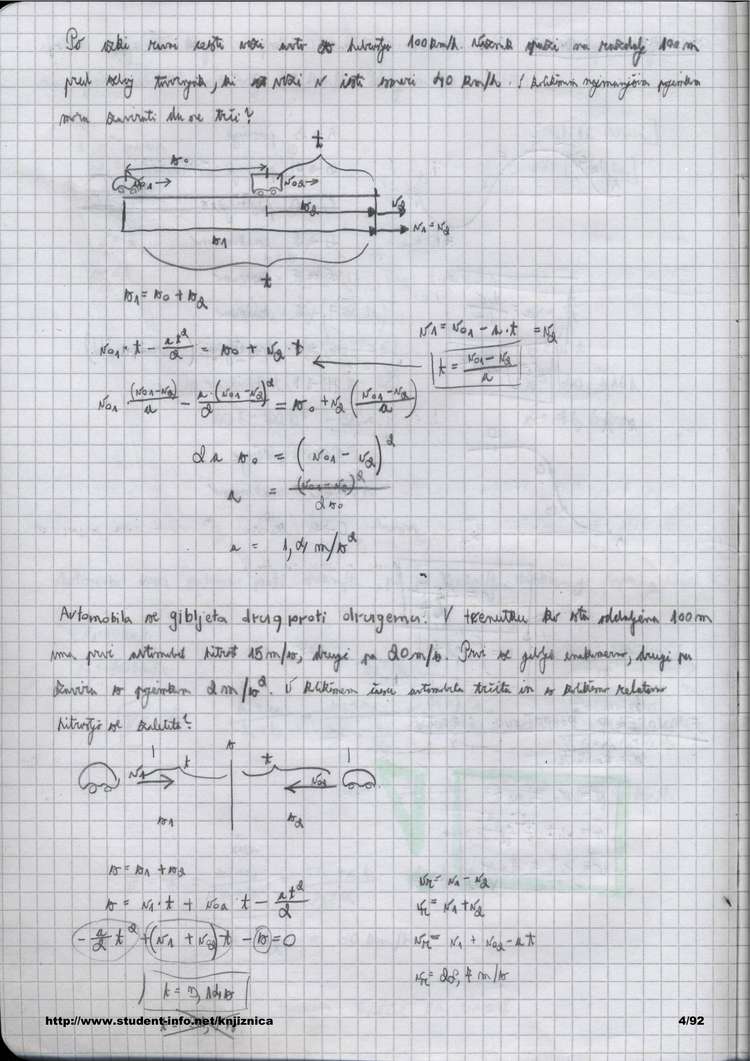 Po ozki ravni cesti vozi avto s hitrostjo 100 km/h. Voznik opazi na razdalji 100 m
pred seboj tovornjak, ki vozi v isti smeri 40 km/h. S kolikšnim najmanjšim pojemkom
mora zavirati da ne trči?
t
s₀
v₀₁ → v₀₂ →
s₂ v₂
s₁ v₁ = v₂
t
s₁ = s₀ + s₂
v₁ = v₀₁ - a · t = v₂
v₀₁ · t - at²/2 = s₀ + v₂ t
t = (v₀₁ - v₂)/a
v₀₁ · (v₀₁-v₂)/a - a·(v₀₁-v₂)²/2 = s₀ + v₂ ((v₀₁-v₂)/a)
2a s₀ = (v₀₁ - v₂)²
a = (v₀₁-v₂)²/2s₀
a = 1,4 m/s²
Avtomobila se gibljeta drug proti drugemu. V trenutku ko sta oddaljena 100 m
ima prvi avtomobil hitrost 15 m/s, drugi pa 20 m/s. Prvi se giblje enakomerno, drugi pa
zavira s pojemkom 2 m/s². V kolikšnem času avtomobila trčita in s kolikšno relativno
hitrostjo se zaletita?
s
v₁ t t v₀₂
s₁ s₂
s = s₁ + s₂
s = v₁ · t + v₀₂ t - at²/2
- a/2 t² + (v₁ + v₂) t - s = 0
vᵣ = v₁ - v₂
vᵣ = v₁ + v₂
vᵣ = v₁ + v₀₂ - at
vᵣ = 28,7 m/s
http://www.student-info.net/knjiznica 4/92